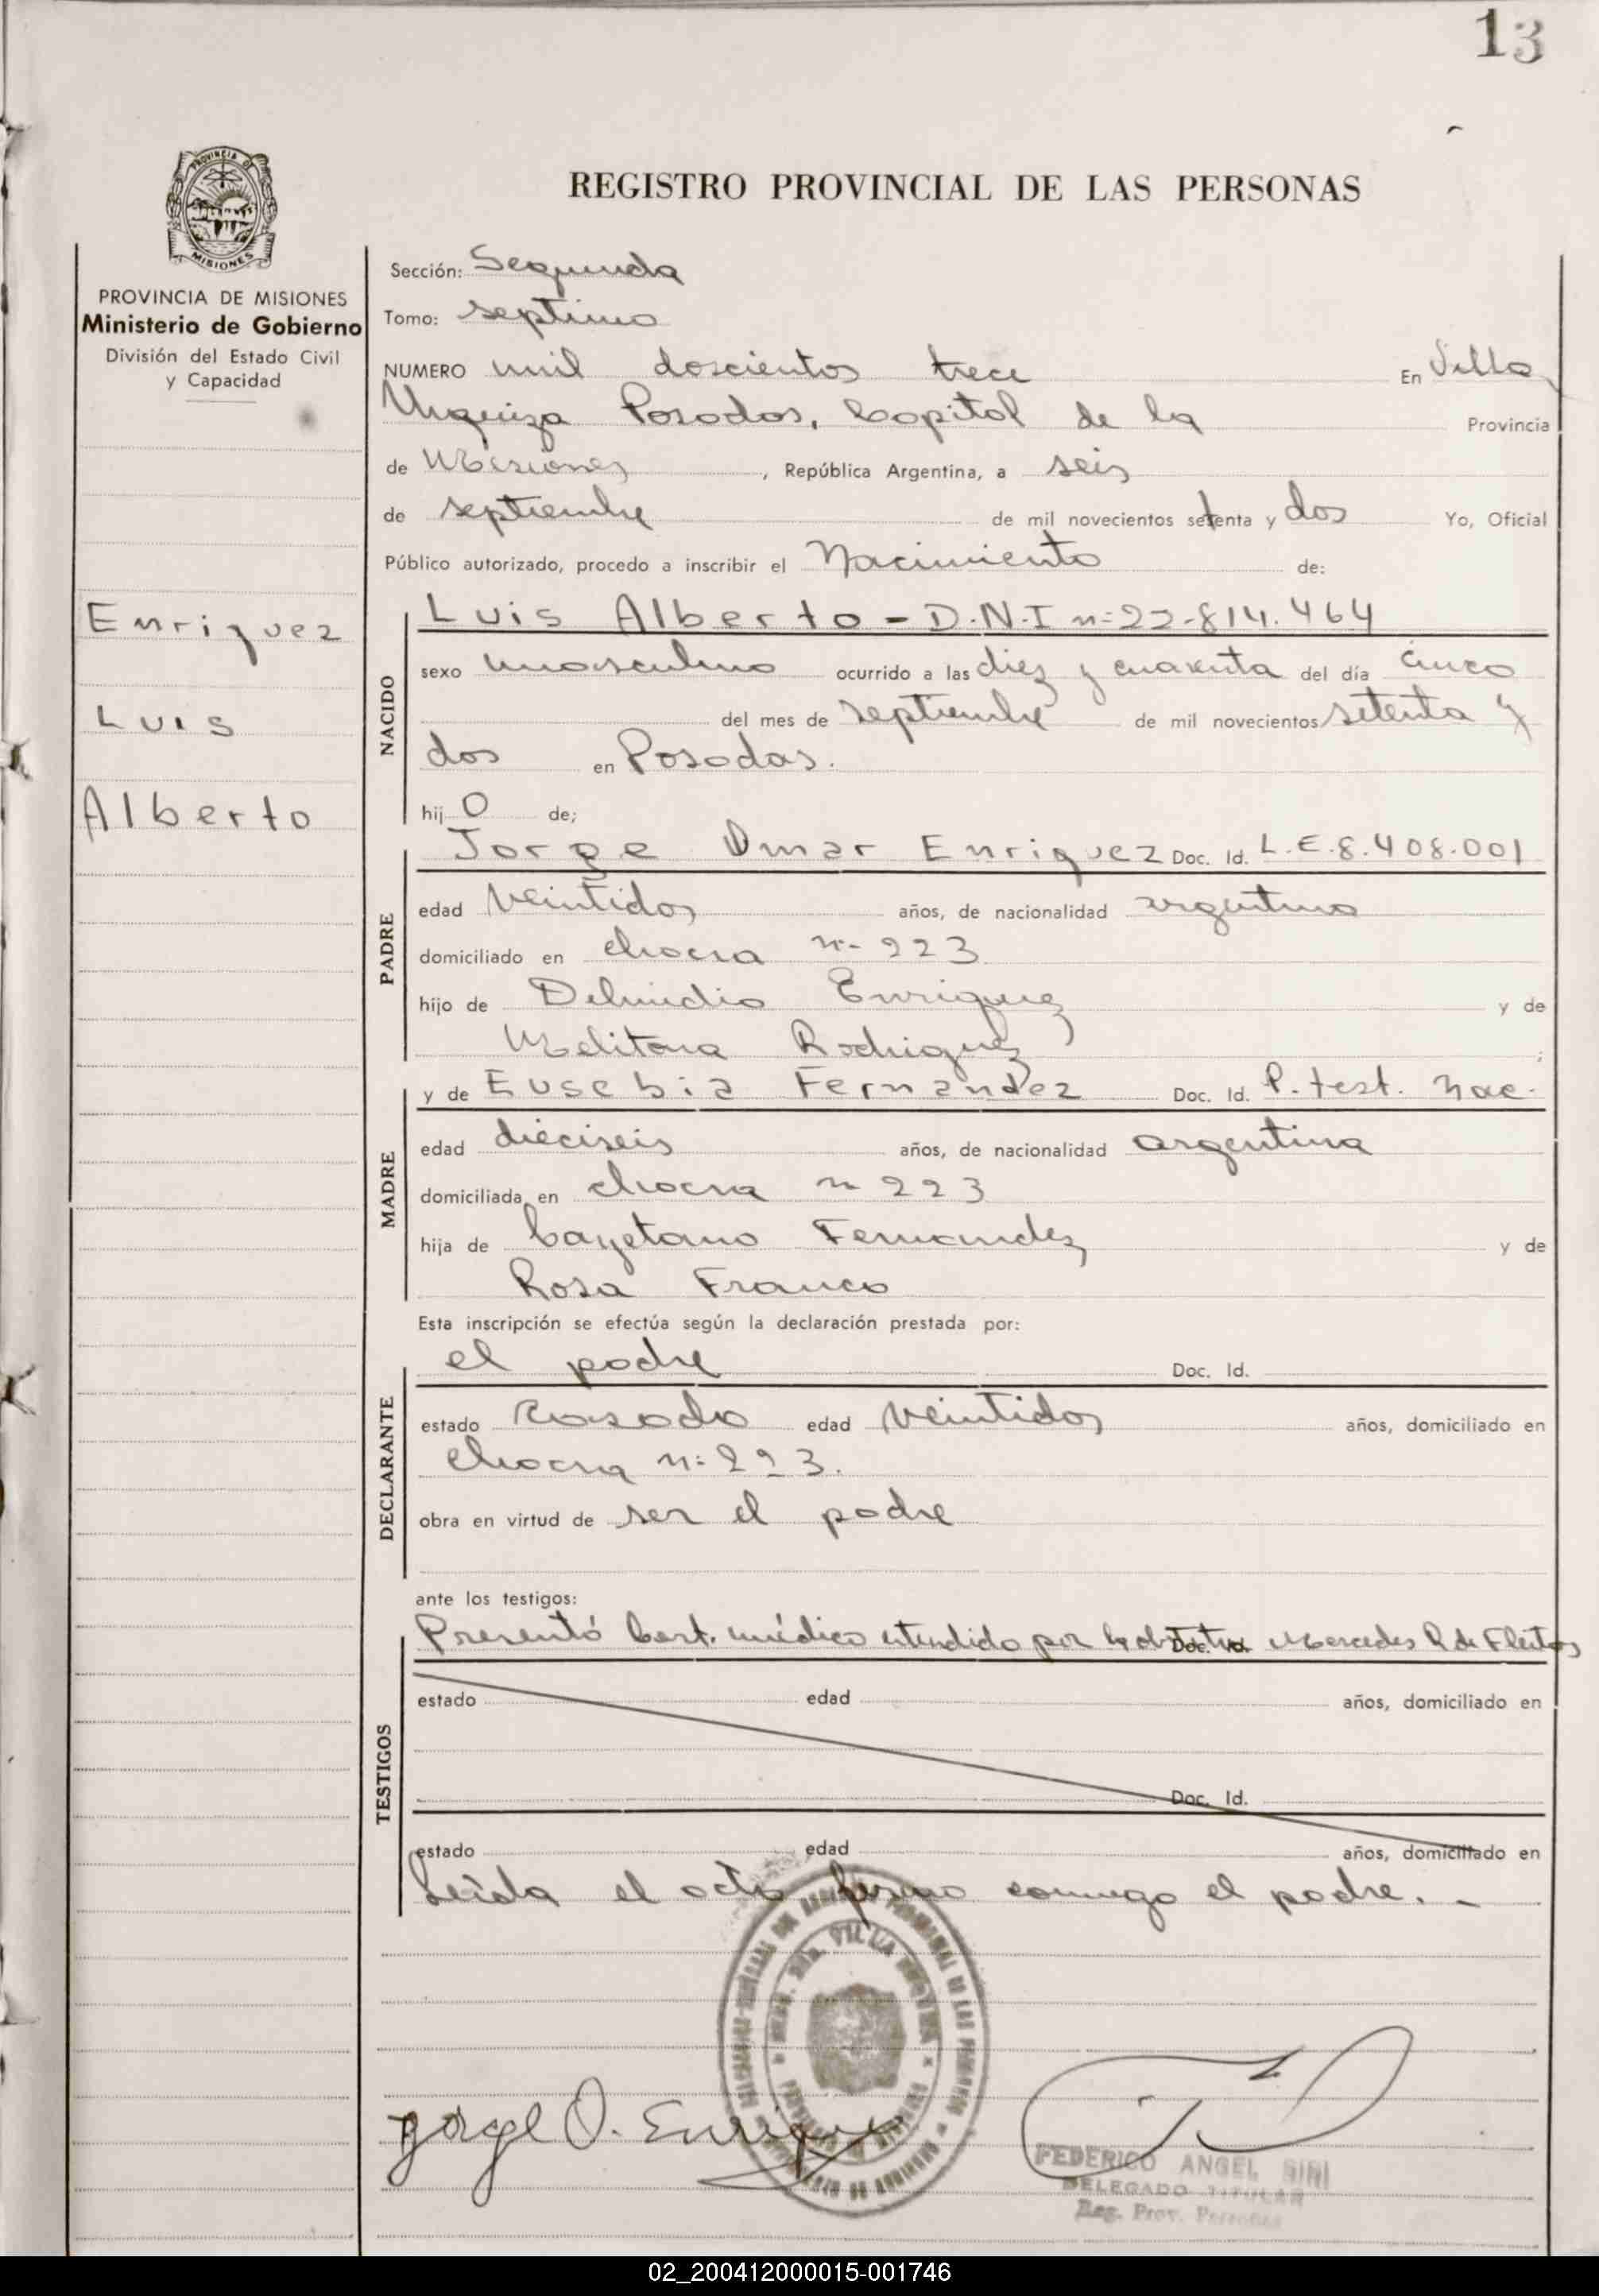 13
PROVINCIA DE
MISIONES
REGISTRO PROVINCIAL DE LAS PERSONAS
PROVINCIA DE MISIONES
Ministerio de Gobierno
División del Estado Civil
y Capacidad
Enriquez
Luis
Alberto
Sección: Segunda
Tomo: septimo
NUMERO mil doscientos trece En Villa
Urquiza Posadas, Capital de la Provincia
de Misiones, República Argentina, a seis
de septiembre de mil novecientos setenta y dos Yo, Oficial
Público autorizado, procedo a inscribir el Nacimiento de:
NACIDO
Luis Alberto - D.N.I n: 22.814.464
sexo masculino ocurrido a las diez y cuarenta del día cinco
del mes de septiembre de mil novecientos setenta y
dos en Posadas.
hijo de;
PADRE
Jorge Omar Enriquez Doc. Id. L.E.8.408.001
edad veintidos años, de nacionalidad argentino
domiciliado en chacra n- 223
hijo de Enriquez y de
Melitona Rodriguez ;
MADRE
y de Eusebia Fernandez Doc. Id. P. test. nac.
edad dieciseis años, de nacionalidad argentina
domiciliada en chacra n 223
hija de Cayetano Fernandez y de
Rosa Franco
Esta inscripción se efectúa según la declaración prestada por:
DECLARANTE
el padre Doc. Id.
estado casado edad veintidos años, domiciliado en
chacra n: 223.
obra en virtud de ser el padre
ante los testigos:
TESTIGOS
Presentó Cert. médico extendido por la obstetra Mercedes R de Fleitas
estado edad años, domiciliado en
Doc. Id.
estado edad años, domiciliado en
Leída el acta firma conmigo el padre. -
Jorge O. Enriquez
FEDERICO ANGEL SIRI
DELEGADO TITULAR
Reg. Prov. Personas
02_200412000015-001746